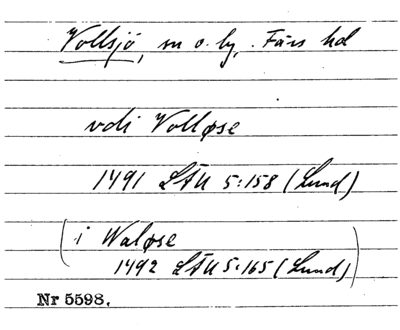 Vollsjö, sn o. by, Färs hd
vdi Volløse
1491 LÄU 5:158 (Lund)
(i Waløse
1492 LÄU 5:165 (Lund))
Nr 5598.